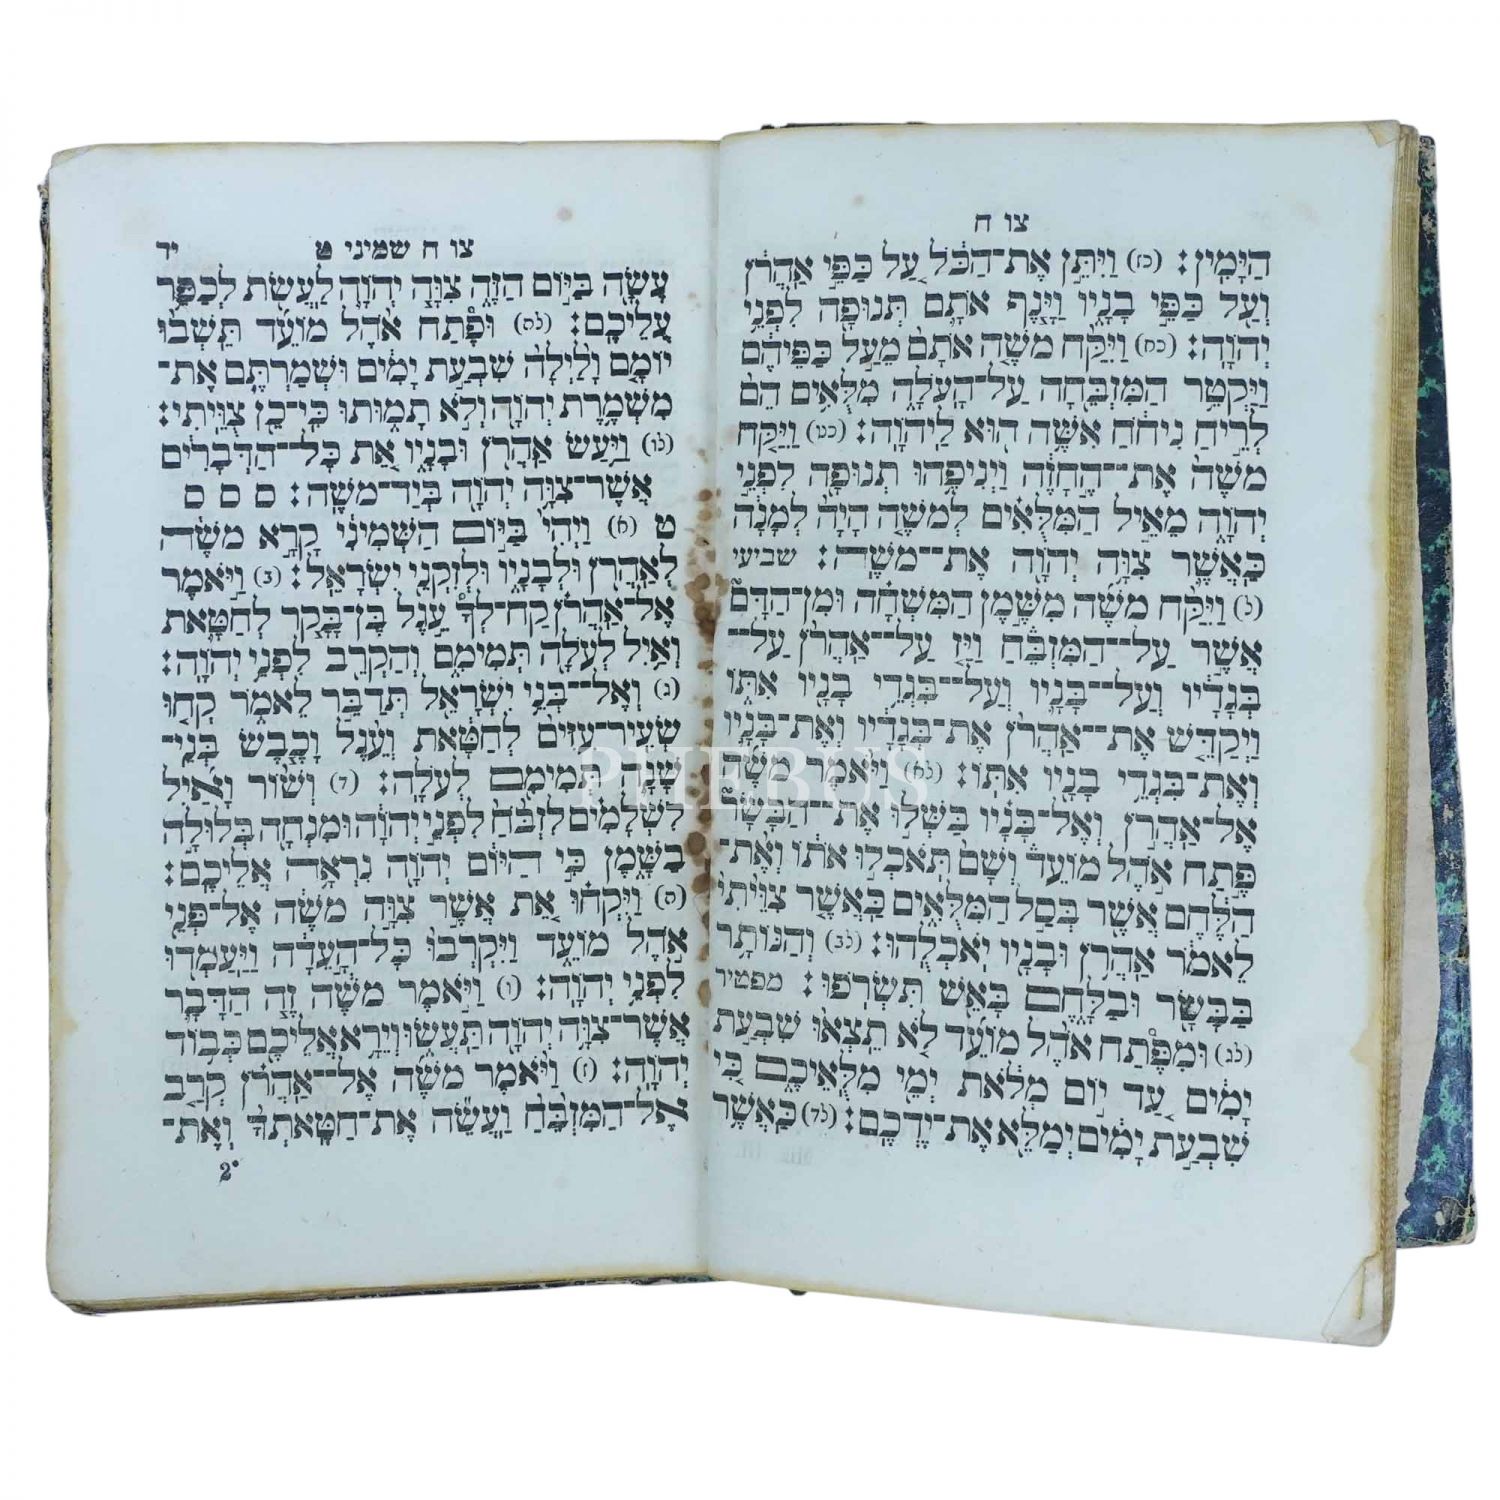 צו ח
הַיָּמִין: (כז) וַיִּתֵּן אֶת־הַכֹּל עַל כַּפֵּי אַהֲרֹן
וְעַל כַּפֵּי בָנָיו וַיָּנֶף אֹתָם תְּנוּפָה לִפְנֵי
יְהוָֹה: (כח) וַיִּקַּח מֹשֶׁה אֹתָם מֵעַל כַּפֵּיהֶם
וַיַּקְטֵר הַמִּזְבֵּחָה עַל־הָעֹלָה מִלֻּאִים הֵם
לְרֵיחַ נִיחֹחַ אִשֶּׁה הוּא לַיהוָֹה: (כט) וַיִּקַּח
מֹשֶׁה אֶת־הֶחָזֶה וַיְנִיפֵהוּ תְנוּפָה לִפְנֵי
יְהוָֹה מֵאֵיל הַמִּלֻּאִים לְמֹשֶׁה הָיָה לְמָנָה
כַּאֲשֶׁר צִוָּה יְהוָֹה אֶת־מֹשֶׁה: שביעי
(ל) וַיִּקַּח מֹשֶׁה מִשֶּׁמֶן הַמִּשְׁחָה וּמִן־הַדָּם
אֲשֶׁר עַל־הַמִּזְבֵּחַ וַיַּז עַל־אַהֲרֹן עַל־
בְּגָדָיו וְעַל־בָּנָיו וְעַל־בִּגְדֵי בָנָיו אִתּוֹ
וַיְקַדֵּשׁ אֶת־אַהֲרֹן אֶת־בְּגָדָיו וְאֶת־בָּנָיו
וְאֶת־בִּגְדֵי בָנָיו אִתּוֹ: (לא) וַיֹּאמֶר מֹשֶׁה
אֶל־אַהֲרֹן וְאֶל־בָּנָיו בַּשְּׁלוּ אֶת־הַבָּשָׂר
פֶּתַח אֹהֶל מוֹעֵד וְשָׁם תֹּאכְלוּ אֹתוֹ וְאֶת־
הַלֶּחֶם אֲשֶׁר בְּסַל הַמִּלֻּאִים כַּאֲשֶׁר צִוֵּיתִי
לֵאמֹר אַהֲרֹן וּבָנָיו יֹאכְלֻהוּ: (לב) וְהַנּוֹתָר
בַּבָּשָׂר וּבַלָּחֶם בָּאֵשׁ תִּשְׂרֹפוּ: מפטיר
(לג) וּמִפֶּתַח אֹהֶל מוֹעֵד לֹא תֵצְאוּ שִׁבְעַת
יָמִים עַד יוֹם מְלֹאת יְמֵי מִלֻּאֵיכֶם כִּי
שִׁבְעַת יָמִים יְמַלֵּא אֶת־יֶדְכֶם: (לד) כַּאֲשֶׁר
צו ח שמיני ט יד
עָשָׂה בַּיּוֹם הַזֶּה צִוָּה יְהוָֹה לַעֲשֹׂת לְכַפֵּר
עֲלֵיכֶם: (לה) וּפֶתַח אֹהֶל מוֹעֵד תֵּשְׁבוּ
יוֹמָם וָלַיְלָה שִׁבְעַת יָמִים וּשְׁמַרְתֶּם אֶת־
מִשְׁמֶרֶת יְהוָֹה וְלֹא תָמוּתוּ כִּי־כֵן צֻוֵּיתִי:
(לו) וַיַּעַשׂ אַהֲרֹן וּבָנָיו אֵת כָּל־הַדְּבָרִים
אֲשֶׁר־צִוָּה יְהוָֹה בְּיַד־מֹשֶׁה: ס ס ס
ט (א) וַיְהִי בַּיּוֹם הַשְּׁמִינִי קָרָא מֹשֶׁה
לְאַהֲרֹן וּלְבָנָיו וּלְזִקְנֵי יִשְׂרָאֵל: (ב) וַיֹּאמֶר
אֶל־אַהֲרֹן קַח־לְךָ עֵגֶל בֶּן־בָּקָר לְחַטָּאת
וְאַיִל לְעֹלָה תְּמִימִם וְהַקְרֵב לִפְנֵי יְהוָֹה:
(ג) וְאֶל־בְּנֵי יִשְׂרָאֵל תְּדַבֵּר לֵאמֹר קְחוּ
שְׂעִיר־עִזִּים לְחַטָּאת וְעֵגֶל וָכֶבֶשׂ בְּנֵי־
שָׁנָה תְּמִימִם לְעֹלָה: (ד) וְשׁוֹר וָאַיִל
לִשְׁלָמִים לִזְבֹּחַ לִפְנֵי יְהוָֹה וּמִנְחָה בְּלוּלָה
בַשָּׁמֶן כִּי הַיּוֹם יְהוָֹה נִרְאָה אֲלֵיכֶם:
(ה) וַיִּקְחוּ אֵת אֲשֶׁר צִוָּה מֹשֶׁה אֶל־פְּנֵי
אֹהֶל מוֹעֵד וַיִּקְרְבוּ כָּל־הָעֵדָה וַיַּעַמְדוּ
לִפְנֵי יְהוָֹה: (ו) וַיֹּאמֶר מֹשֶׁה זֶה הַדָּבָר
אֲשֶׁר־צִוָּה יְהוָֹה תַּעֲשׂוּ וְיֵרָא אֲלֵיכֶם כְּבוֹד
יְהוָֹה: (ז) וַיֹּאמֶר מֹשֶׁה אֶל־אַהֲרֹן קְרַב
אֶל־הַמִּזְבֵּחַ וַעֲשֵׂה אֶת־חַטָּאתְךָ וְאֶת־
2*
PHEBUS